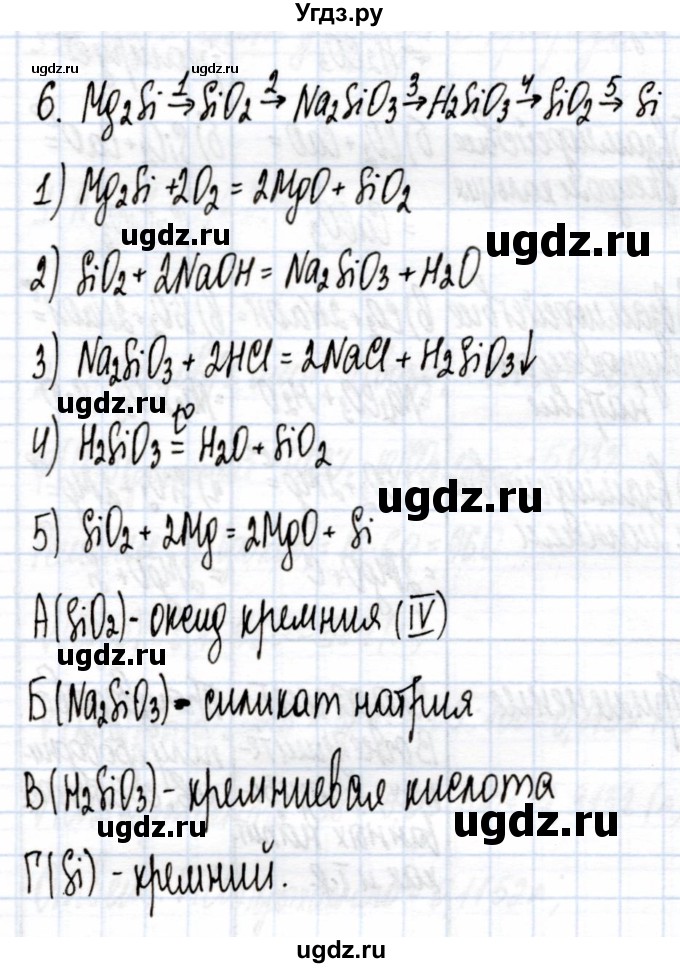 Угдз.ру
ugdz.ru ugdz.ru
6. Mg₂Si →¹ SiO₂ →² Na₂SiO₃ →³ H₂SiO₃ →⁴ SiO₂ →⁵ Si
1) Mg₂Si + 2O₂ = 2MgO + SiO₂
ugdz.ru ugdz.ru
2) SiO₂ + 2NaOH = Na₂SiO₃ + H₂O
3) Na₂SiO₃ + 2HCl = 2NaCl + H₂SiO₃↓
ugdz.ru
4) H₂SiO₃ =ᵗ⁰ H₂O + SiO₂
ugdz.ru
5) SiO₂ + 2Mg = 2MgO + Si
А (SiO₂) - оксид кремния (IV)
ugdz.ru
Б (Na₂SiO₃) - силикат натрия
В (H₂SiO₃) - кремниевая кислота
ugdz.ru ugdz.ru
Г (Si) - кремний.
ugdz.ru